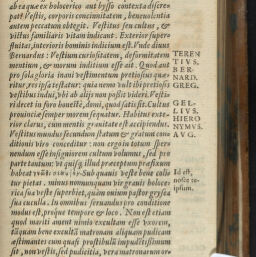 ab ea quæ ex holocerico aut bysso contexta disere-
pat? Vestis, corporis concinnitatem, beneuolentia
autem peccatum obtegit. Vestitus seu cultus, &
victus familiaris vitam indicant. Exterior super-
fluitas, interioris hominis indicium est. Vnde diuus
Bernardus: Vestium curiositatem, deformitatem
mentium, & morum indicium esse ait. Quod aut
pro sola gloria inani vestimentum pretiosius quæ-
ritur, res ipsa testatur: quia nemo vult ibi pretiosis
vestibus indui, vbi ab alijs non possit videri. Vesti-
ri decet in foro honestè, domi, quod satis sit. Cultus
prouinciæ semper morem sequatur. Habitus exte-
rior clarus, cum mentis grauitate est accipiendus.
Vestitus mundus secundum statum & gratum cond
ditionis viro conceditur: non ergo in totum sper-
nendum esse insigniorem cultum volumus, sed pro
parte tantum: vt quisq; illud præceptum præfixum
habeat Sub qualis veste bone colli-
tur pietat. minus nonnunquam vir grauis holoce-
rica seu veste superbiet, quàm ouium pastor gryssea
sua cuculla. In omnibus seruandus pro conditione
modus est, proque tempore & loco. Non est etiam
quod mariti ament nimio excultam esse vxorem,
tā quàm bene excultā matronam aliquam pudicam
æstimantes cum quasi prostibuli impudicissimum
sit, non vestis, sed pudicitia, vera matronarum or-
TEREN
TIVS.
BER-
NARD.
GREG.
GEL-
LIVS.
HIERO
NYMVS.
AVG.
Id est,
nosce te-
ipsum.